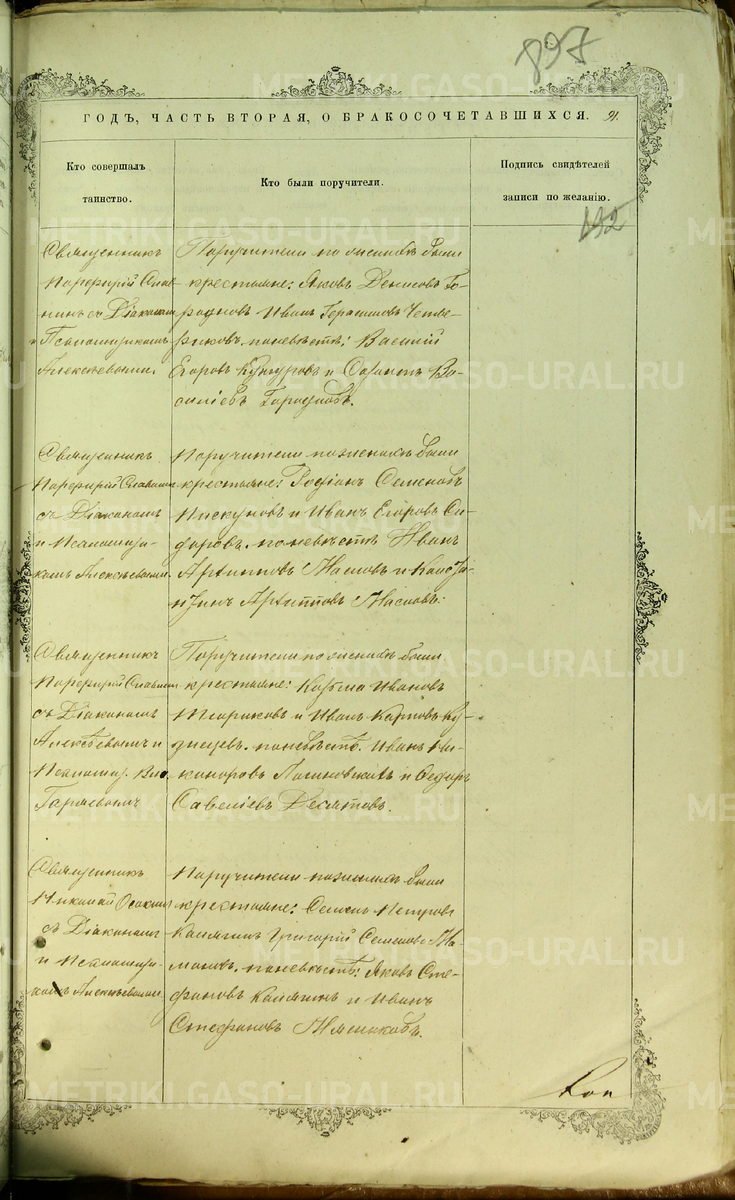 897
ГОДЪ, ЧАСТЬ ВТОРАЯ, О БРАКОСОЧЕТАВШИХСЯ. 91.
Кто совершалъ
таинство.
Кто были поручители.
Подпись свидѣтелей
записи по желанію.
192
Священникъ
Порфирій Слав
нинъ съ Діакономъ
и Псаломщикомъ
Алексѣевыми
Поручители по женихѣ были
крестьяне: Яковъ Денисовъ Го-
родновъ Иванъ Герасимовъ Четве-
риковъ. по невѣстѣ: Василій
Егоровъ и Ва-
силіевъ Городновъ.
Священникъ
Порфирій Славнинъ
съ Діакономъ
и Псаломщи-
комъ Алексѣевыми
Поручители по женихѣ были
крестьяне: Родіонъ Семеновъ
Пискуновъ и Иванъ Егоровъ Си-
доровъ. по невѣстѣ Иванъ
Архиповъ Масловъ и
Архиповъ Масловъ.
Священникъ
Порфирій Славнинъ
съ Діакономъ
Алексѣевымъ и
Псаломщ.
Поручители по женихѣ были
крестьяне: Козьма Ивановъ
и Иванъ Карповъ Куз
нецовъ. по невѣстѣ. Иванъ Ни-
каноровъ и Федоръ
Савеліевъ Десятовъ.
Священникъ
Николай Осокинъ
съ Діакономъ
и Псаломщи-
комъ Алексѣевыми
Поручители по женихѣ были
крестьяне: Семенъ Петровъ
Калягинъ Григорій Семеновъ Ма
по невѣстѣ: Яковъ Сте-
фановъ Калягинъ и Иванъ
Стефановъ Мясниковъ.
METRIKI.GASO-URAL.RU